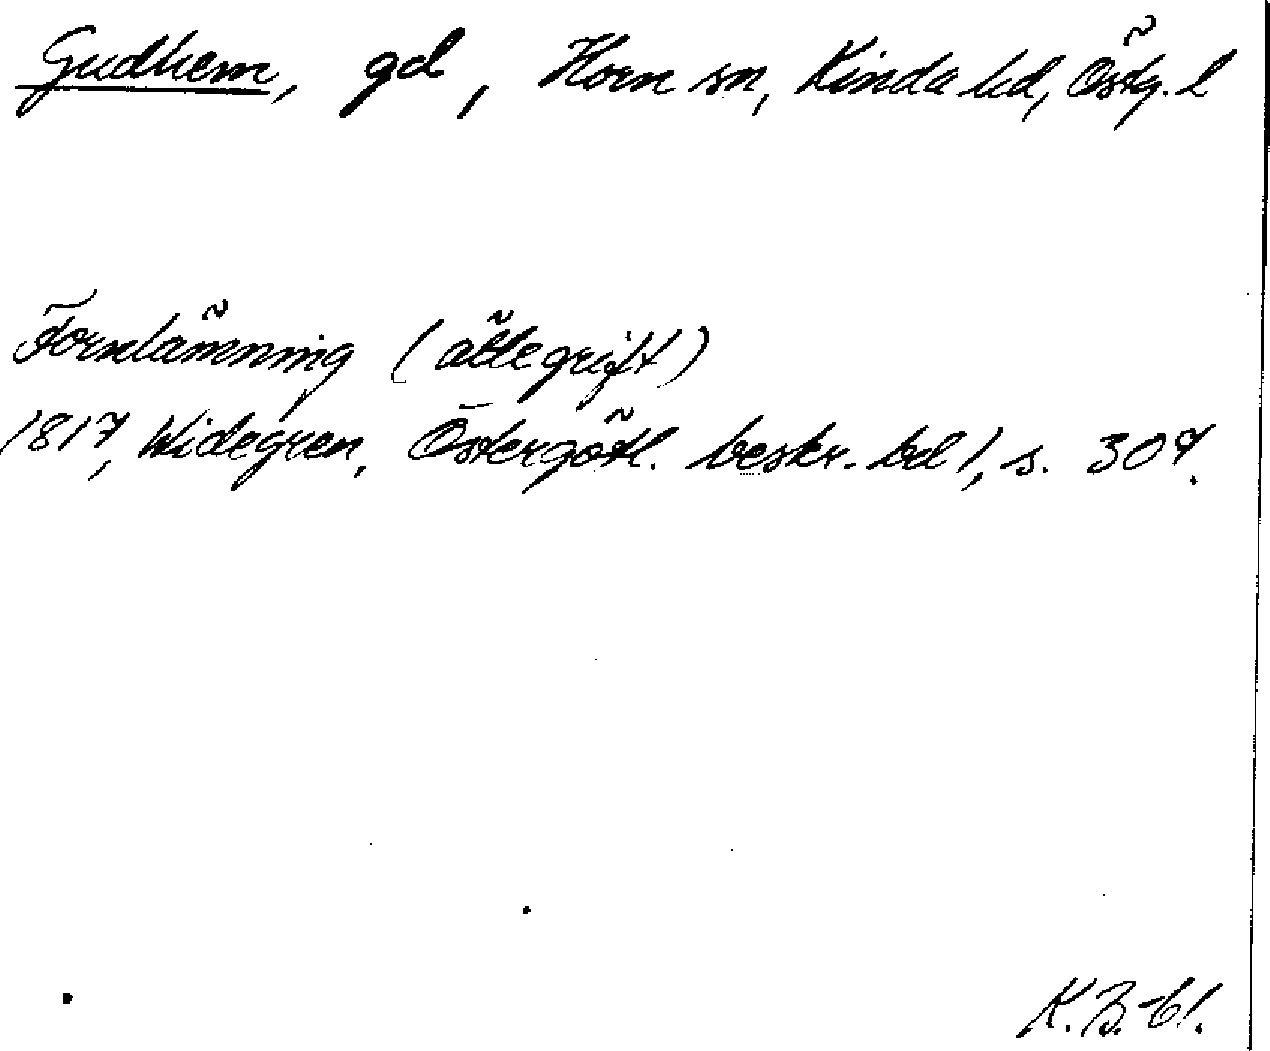 Gudhem, gd, Horn sn, Kinda hd, Östg. l
Fornlämning (ättegrift)
1817, Widegren, Östergötl. beskr. bd 1, s. 307.
K. B-bl.